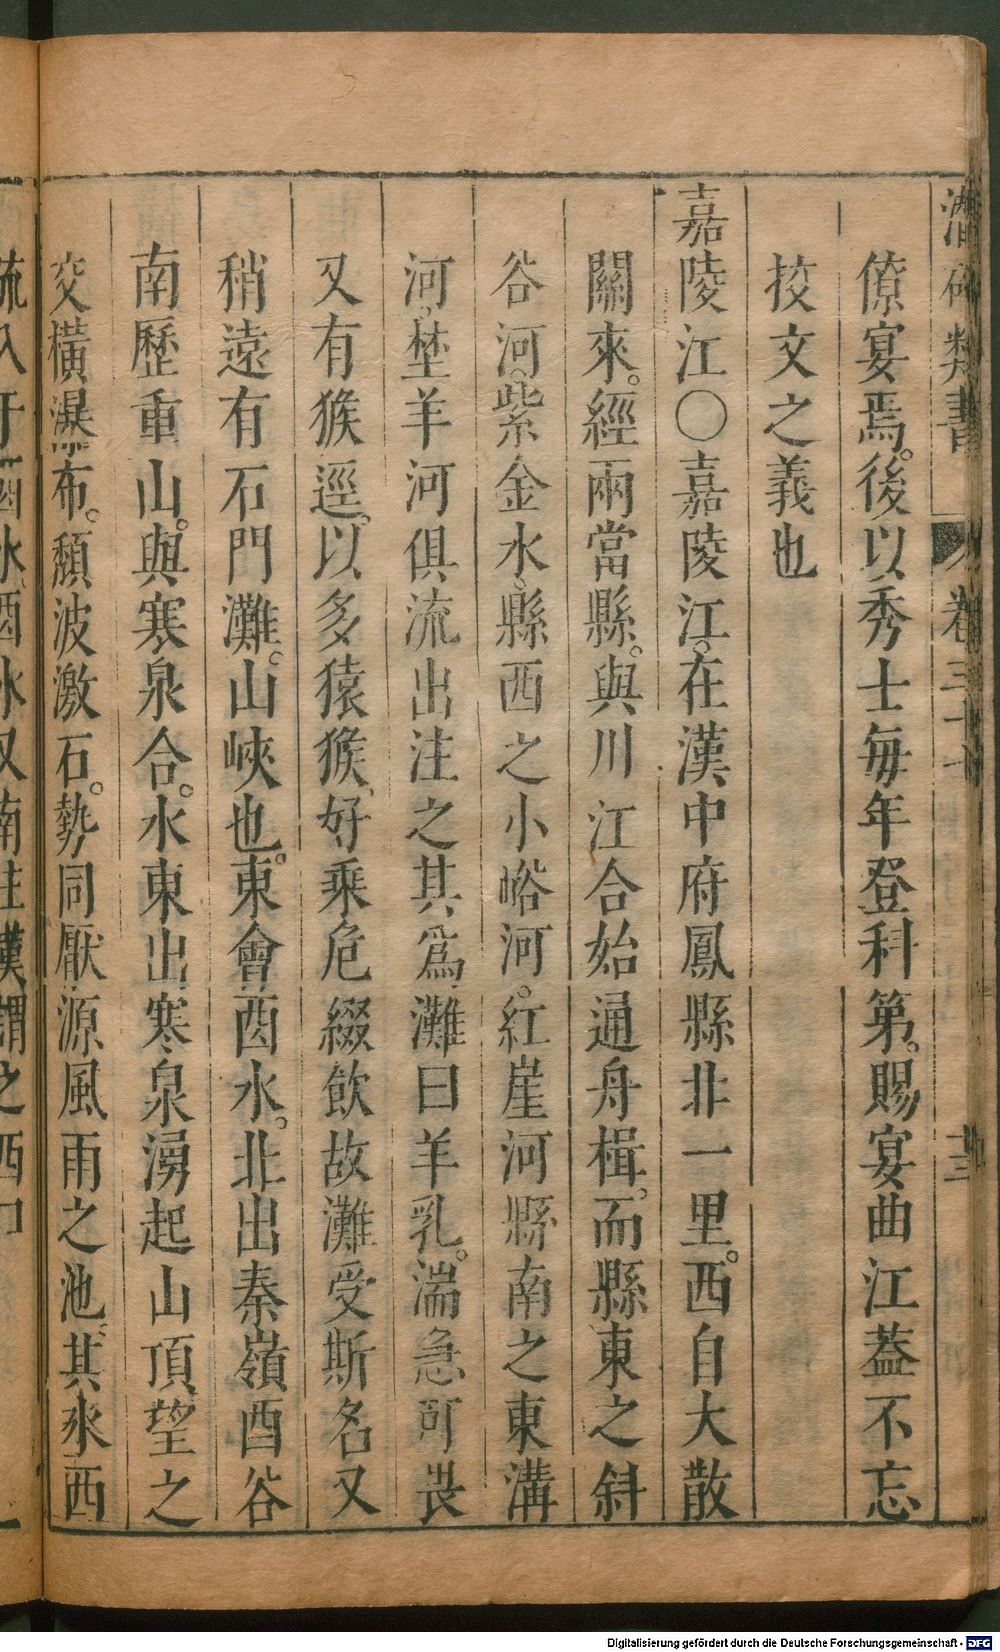 潛確類書 卷三十七 十三
僚宴焉。後以秀士每年登科第。賜宴曲江蓋不忘
挍文之義也
嘉陵江〇嘉陵江。在漢中府鳳縣北一里。西自大散
關來。經兩當縣。與川江合始通舟楫。而縣東之斜
谷河。紫金水、縣西之小峪河。紅崖河縣南之東溝
河、埜羊河俱流出注之其爲灘曰羊乳。湍急可畏
又有猴逕。以多猿猴、好乘危綴飲故灘受斯名又
稍遠有石門灘。山峽也。東會酉水。北出秦嶺酉谷
南歷重山。與寒泉合。水東出寒泉湧起山頂望之
交橫瀑布。頹波激石。勢同厭源風雨之池。其水西
流入于酉水、酉水又南注漢謂之酉口
Digitalisierung gefördert durch die Deutsche Forschungsgemeinschaft - DFG